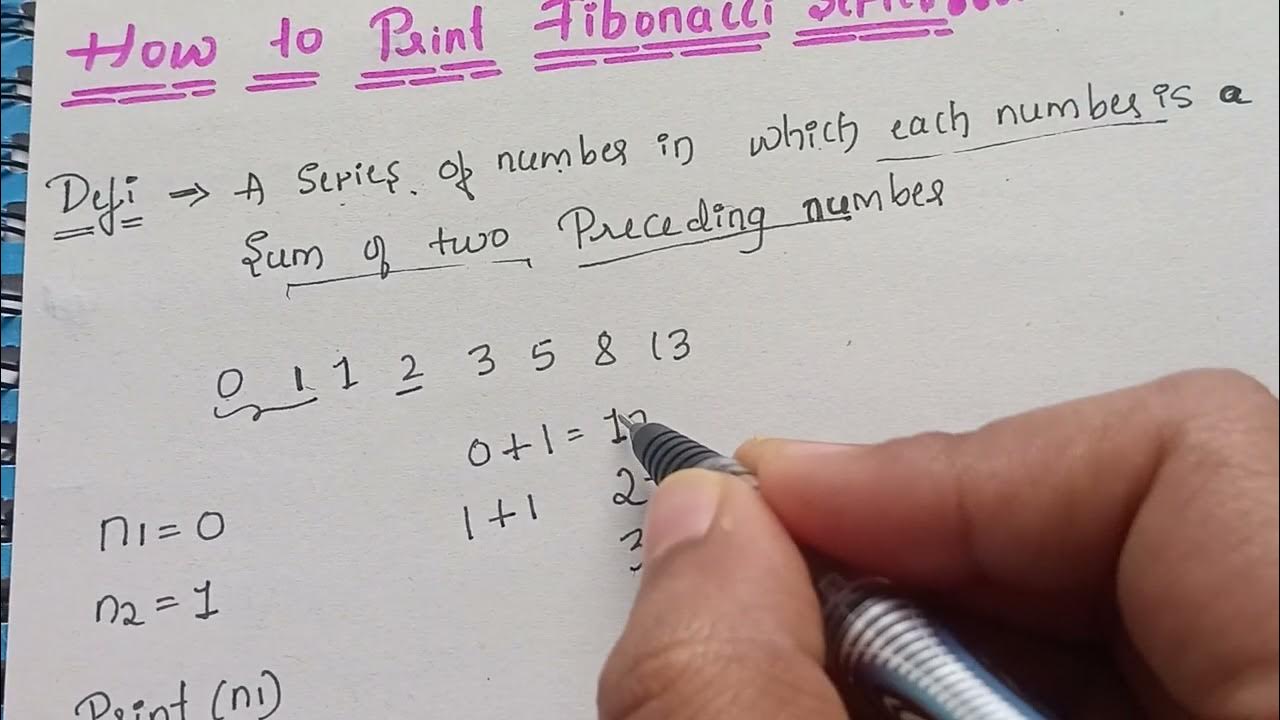 How to Print Fibonacci Series
Defi → A Series of number in which each number is a
Sum of two Preceding number
0 1 1 2 3 5 8 13
0 + 1 = 1
1 + 1 2
3
n1 = 0
n2 = 1
Print (n1)